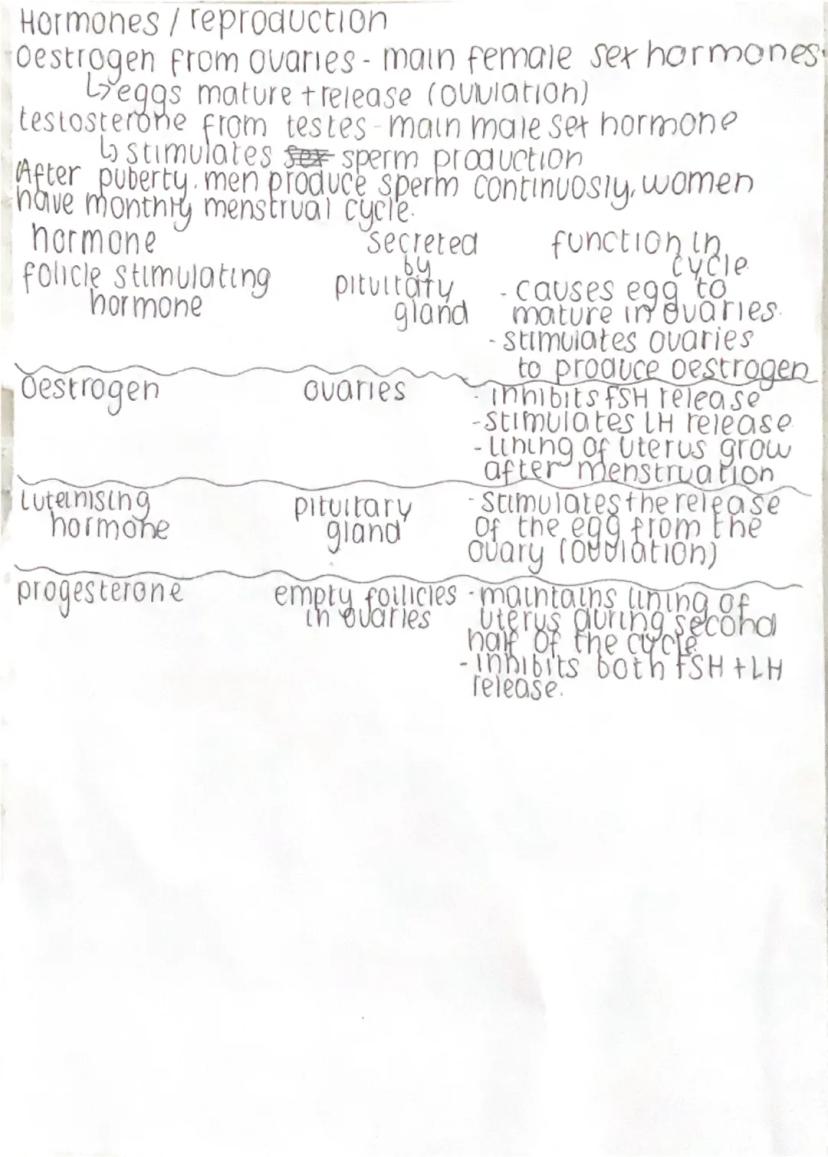 Hormones / reproduction
Oestrogen from ovaries - main female sex hormones.
↳ eggs mature + release (ovulation)
testosterone from testes - main male sex hormone
↳ stimulates sex sperm production
After puberty. men produce sperm continuosly, women
have monthly menstrual cycle.
hormone secreted by function in cycle
folicle stimulating hormone
pituitary gland
- causes egg to
mature in ovaries.
- stimulates ovaries
to produce oestrogen
Oestrogen
ovaries
- inhibits FSH release
- stimulates LH release
- lining of uterus grow
after menstruation
Luteinising
hormone
pituitary
gland
- stimulates the release
of the egg from the
ovary (ovulation)
progesterone
empty follicles
in ovaries
- maintains lining of
uterus during second
half of the cycle
- inhibits both FSH + LH
release.